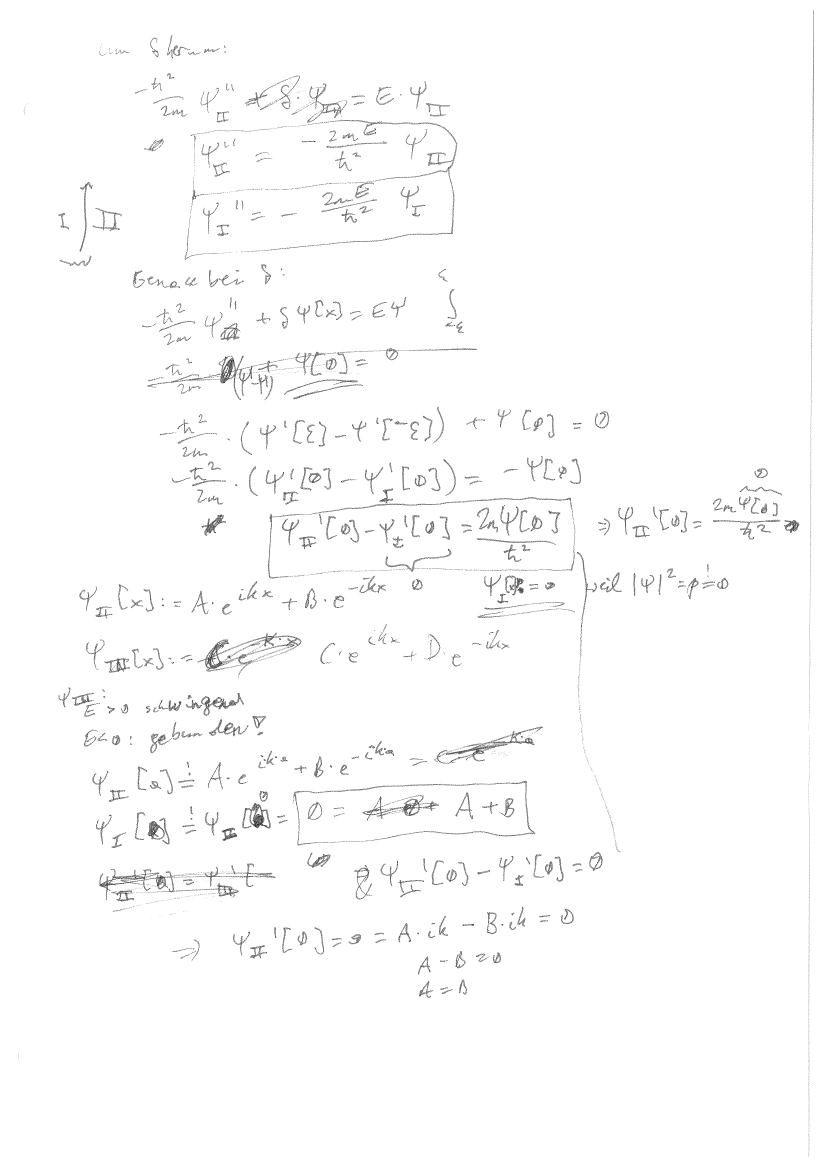 um δ herum:
-ħ²/2m ψ_II'' + δ·ψ_II = E·ψ_II
ψ_II'' = -2mE/ħ² ψ_II
ψ_I'' = -2mE/ħ² ψ_I
I ∫ II
Genau bei δ:
-ħ²/2m ψ'' + δ ψ[x] = Eψ ∫_{-ε}^{ε}
-ħ²/2m (ψ'-ψ') + ψ[0] = 0
-ħ²/2m · (ψ'[ε] - ψ'[-ε]) + ψ[0] = 0
-ħ²/2m · (ψ_II'[0] - ψ_I'[0]) = -ψ[0]
ψ_II'[0] - ψ_I'[0] = 2mψ[0]/ħ² ⇒ ψ_II'[0] = 2mψ[0]/ħ²
0 0
ψ_II[x] := A·e^{ikx} + B·e^{-ikx} ψ_I = 0 weil |ψ|² = ρ != 0
ψ_III[x] := C·e^{ikx} + D·e^{-ikx}
ψ_III:
E>0 schwingend
E<0: gebunden!
ψ_II[a] != A·e^{ik·a} + B·e^{-ik·a} =
ψ_I[0] != ψ_II[0] = 0 = A + B
ψ_II'[0] = ψ_III'[
& ψ_II'[0] - ψ_I'[0] = 0
⇒ ψ_II'[0] = 0 = A·ik - B·ik = 0
A - B = 0
A = B